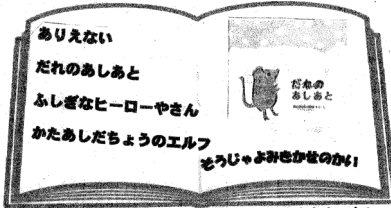 ありえない
だれのあしあと
ふしぎなヒーローやさん
かたあしだちょうのエルフ
だれの
あしあと
そうじゃよみきかせのかい